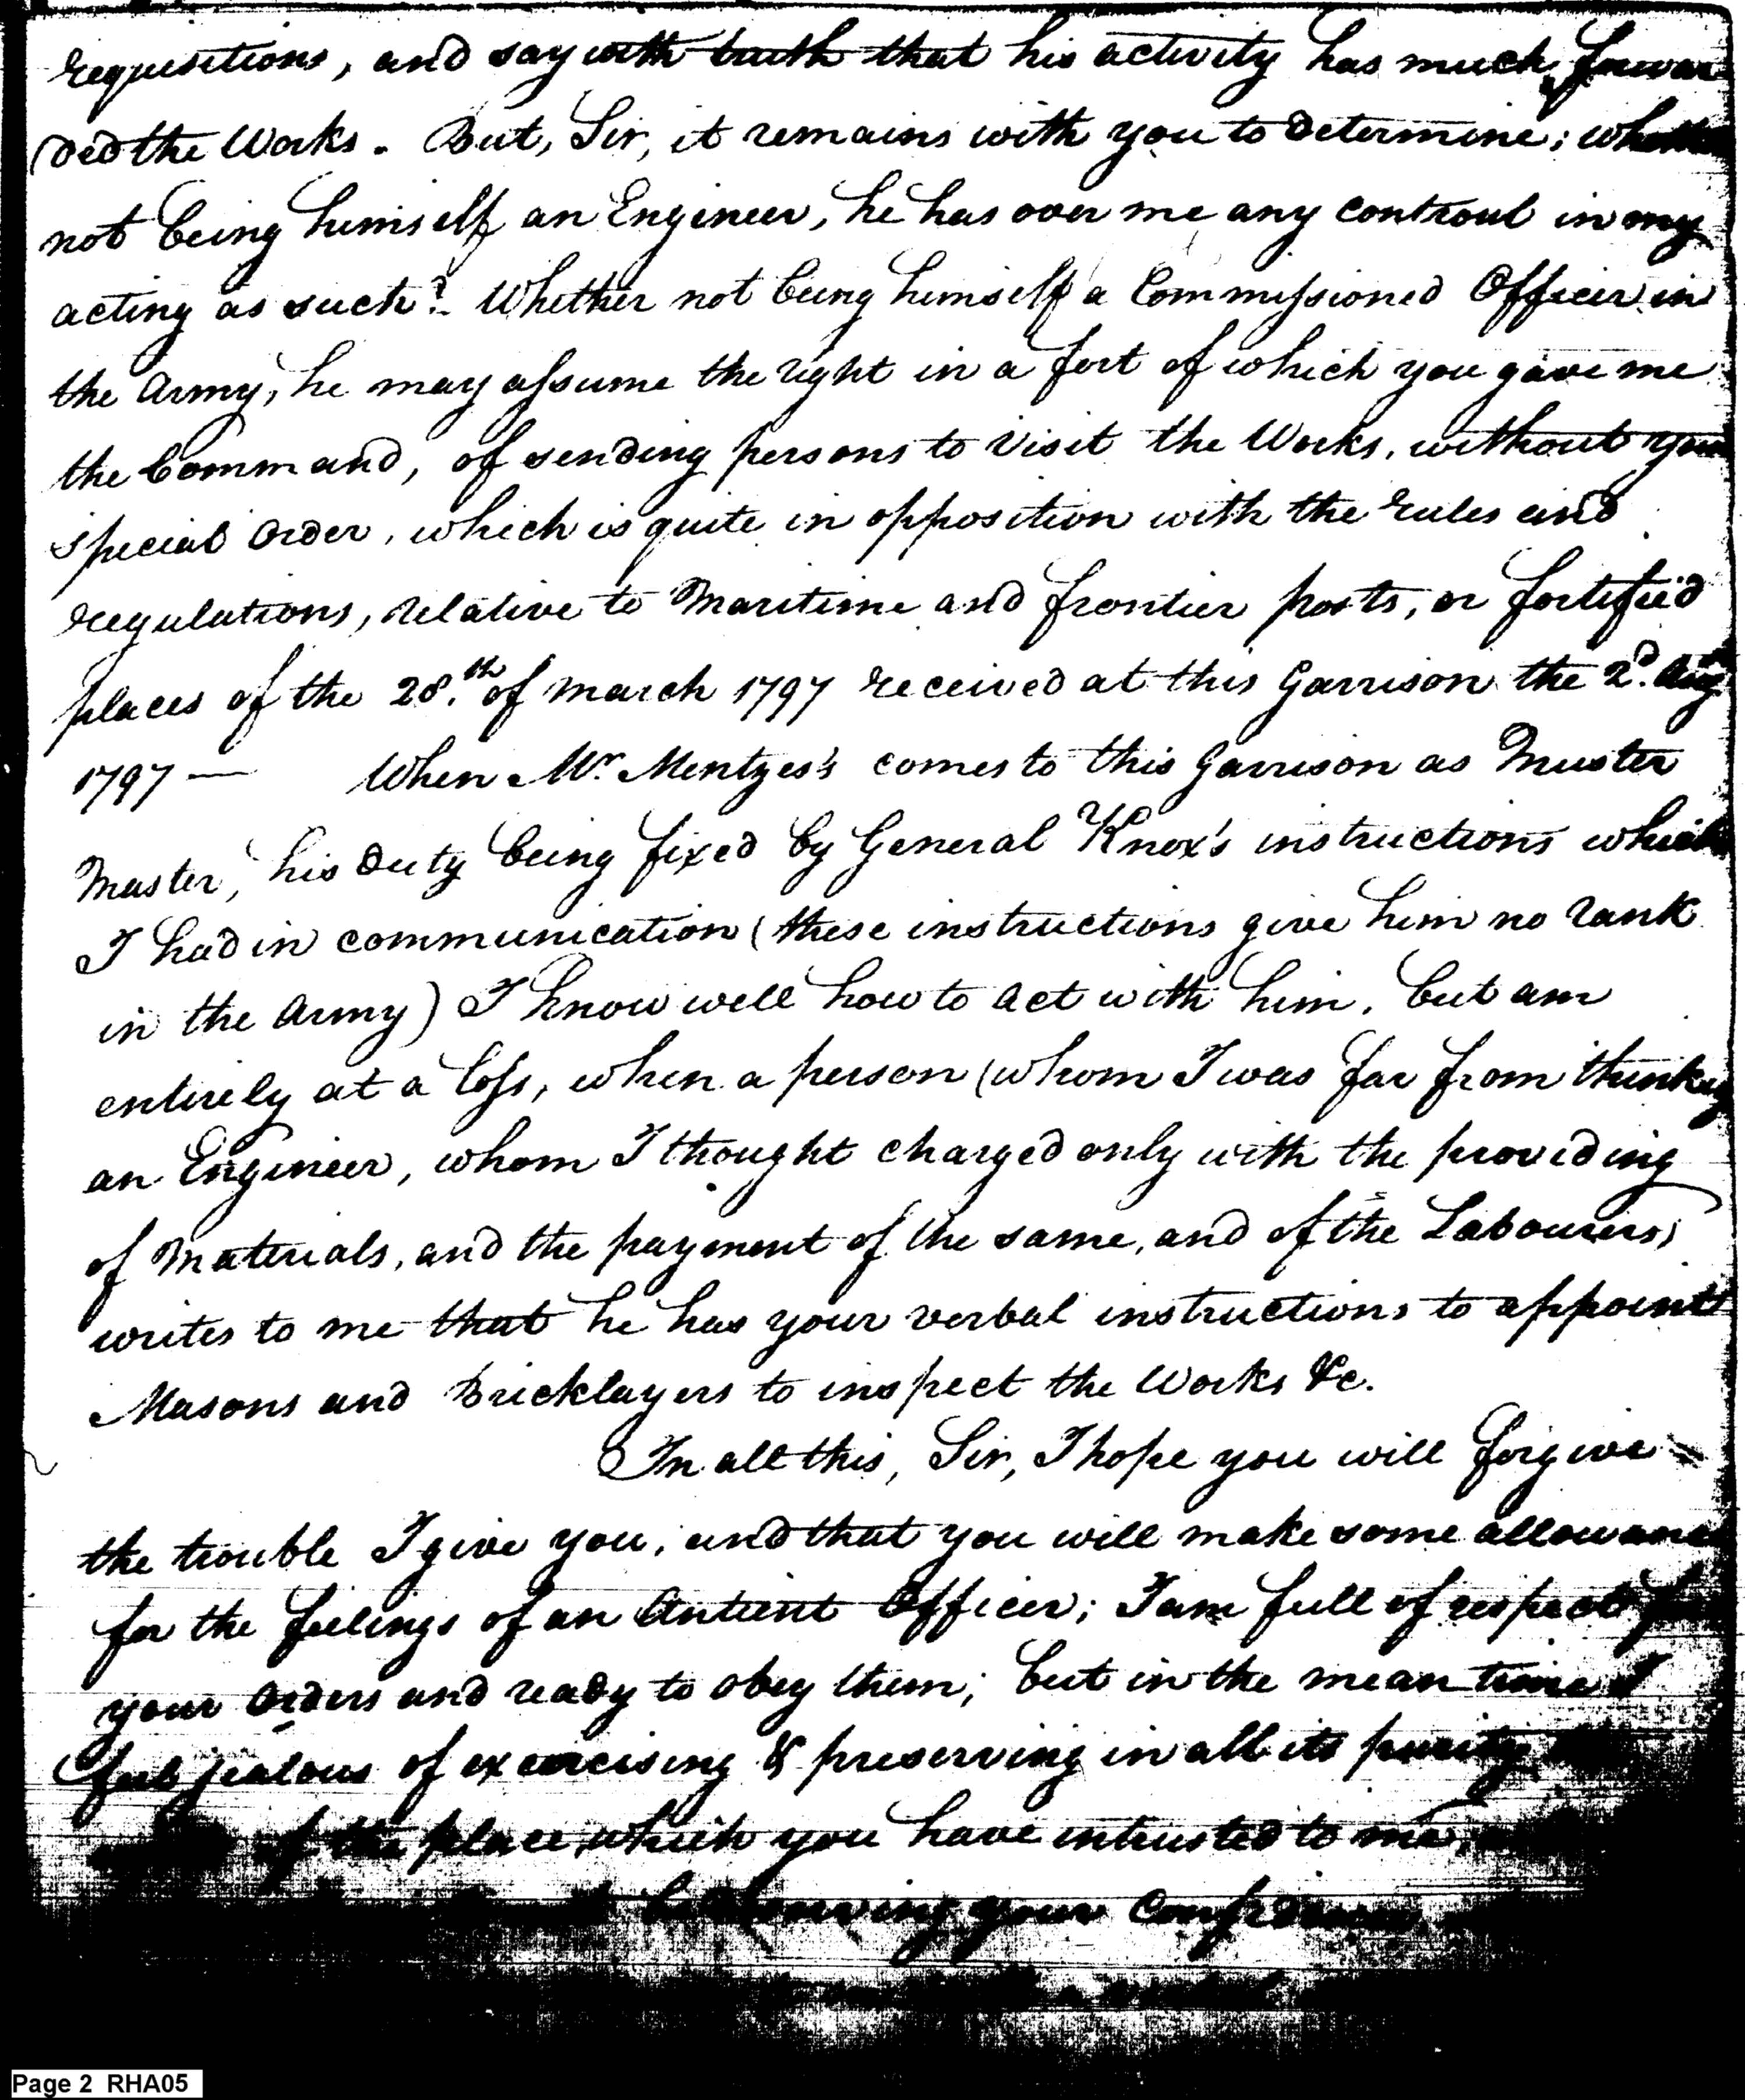 requisitions, and say with truth that his activity has much forwar
ded the Works. But, Sir, it remains with you to determine; whether
not being himself an Engineer, he has over me any controul in my
acting as such? Whether not being himself a Commissioned Officer in
the Army, he may assume the right in a fort of which you gave me
the Command, of sending persons to visit the Works, without your
special Order, which is quite in opposition with the rules and
regulations, relative to Maritime and frontier posts, or fortified
places of the 28.th of march 1797 received at this Garrison the 2d. Aug
1797 — When Mr. Mentges's comes to this Garrison as Muster
Master, his Duty being fixed by General Knox's instructions which
I had in communication (these instructions give him no rank
in the Army) I know well how to act with him. but am
entirely at a loss, when a person (whom I was far from thinking
an Engineer, whom I thought charged only with the providing
of Materials, and the payment of the same, and of the Labourers)
writes to me that he has your verbal instructions to appoint
Masons and Bricklayers to inspect the Works &c.
In all this, Sir, I hope you will forgive
the trouble I give you, and that you will make some allowance
for the feelings of an Antient Officer; I am full of respect for
your Orders and ready to obey them; but in the mean time I
feel jealous of exercising & preserving in all its purity
of the place which you have intrusted to me,
your Confidence
Page 2 RHA05